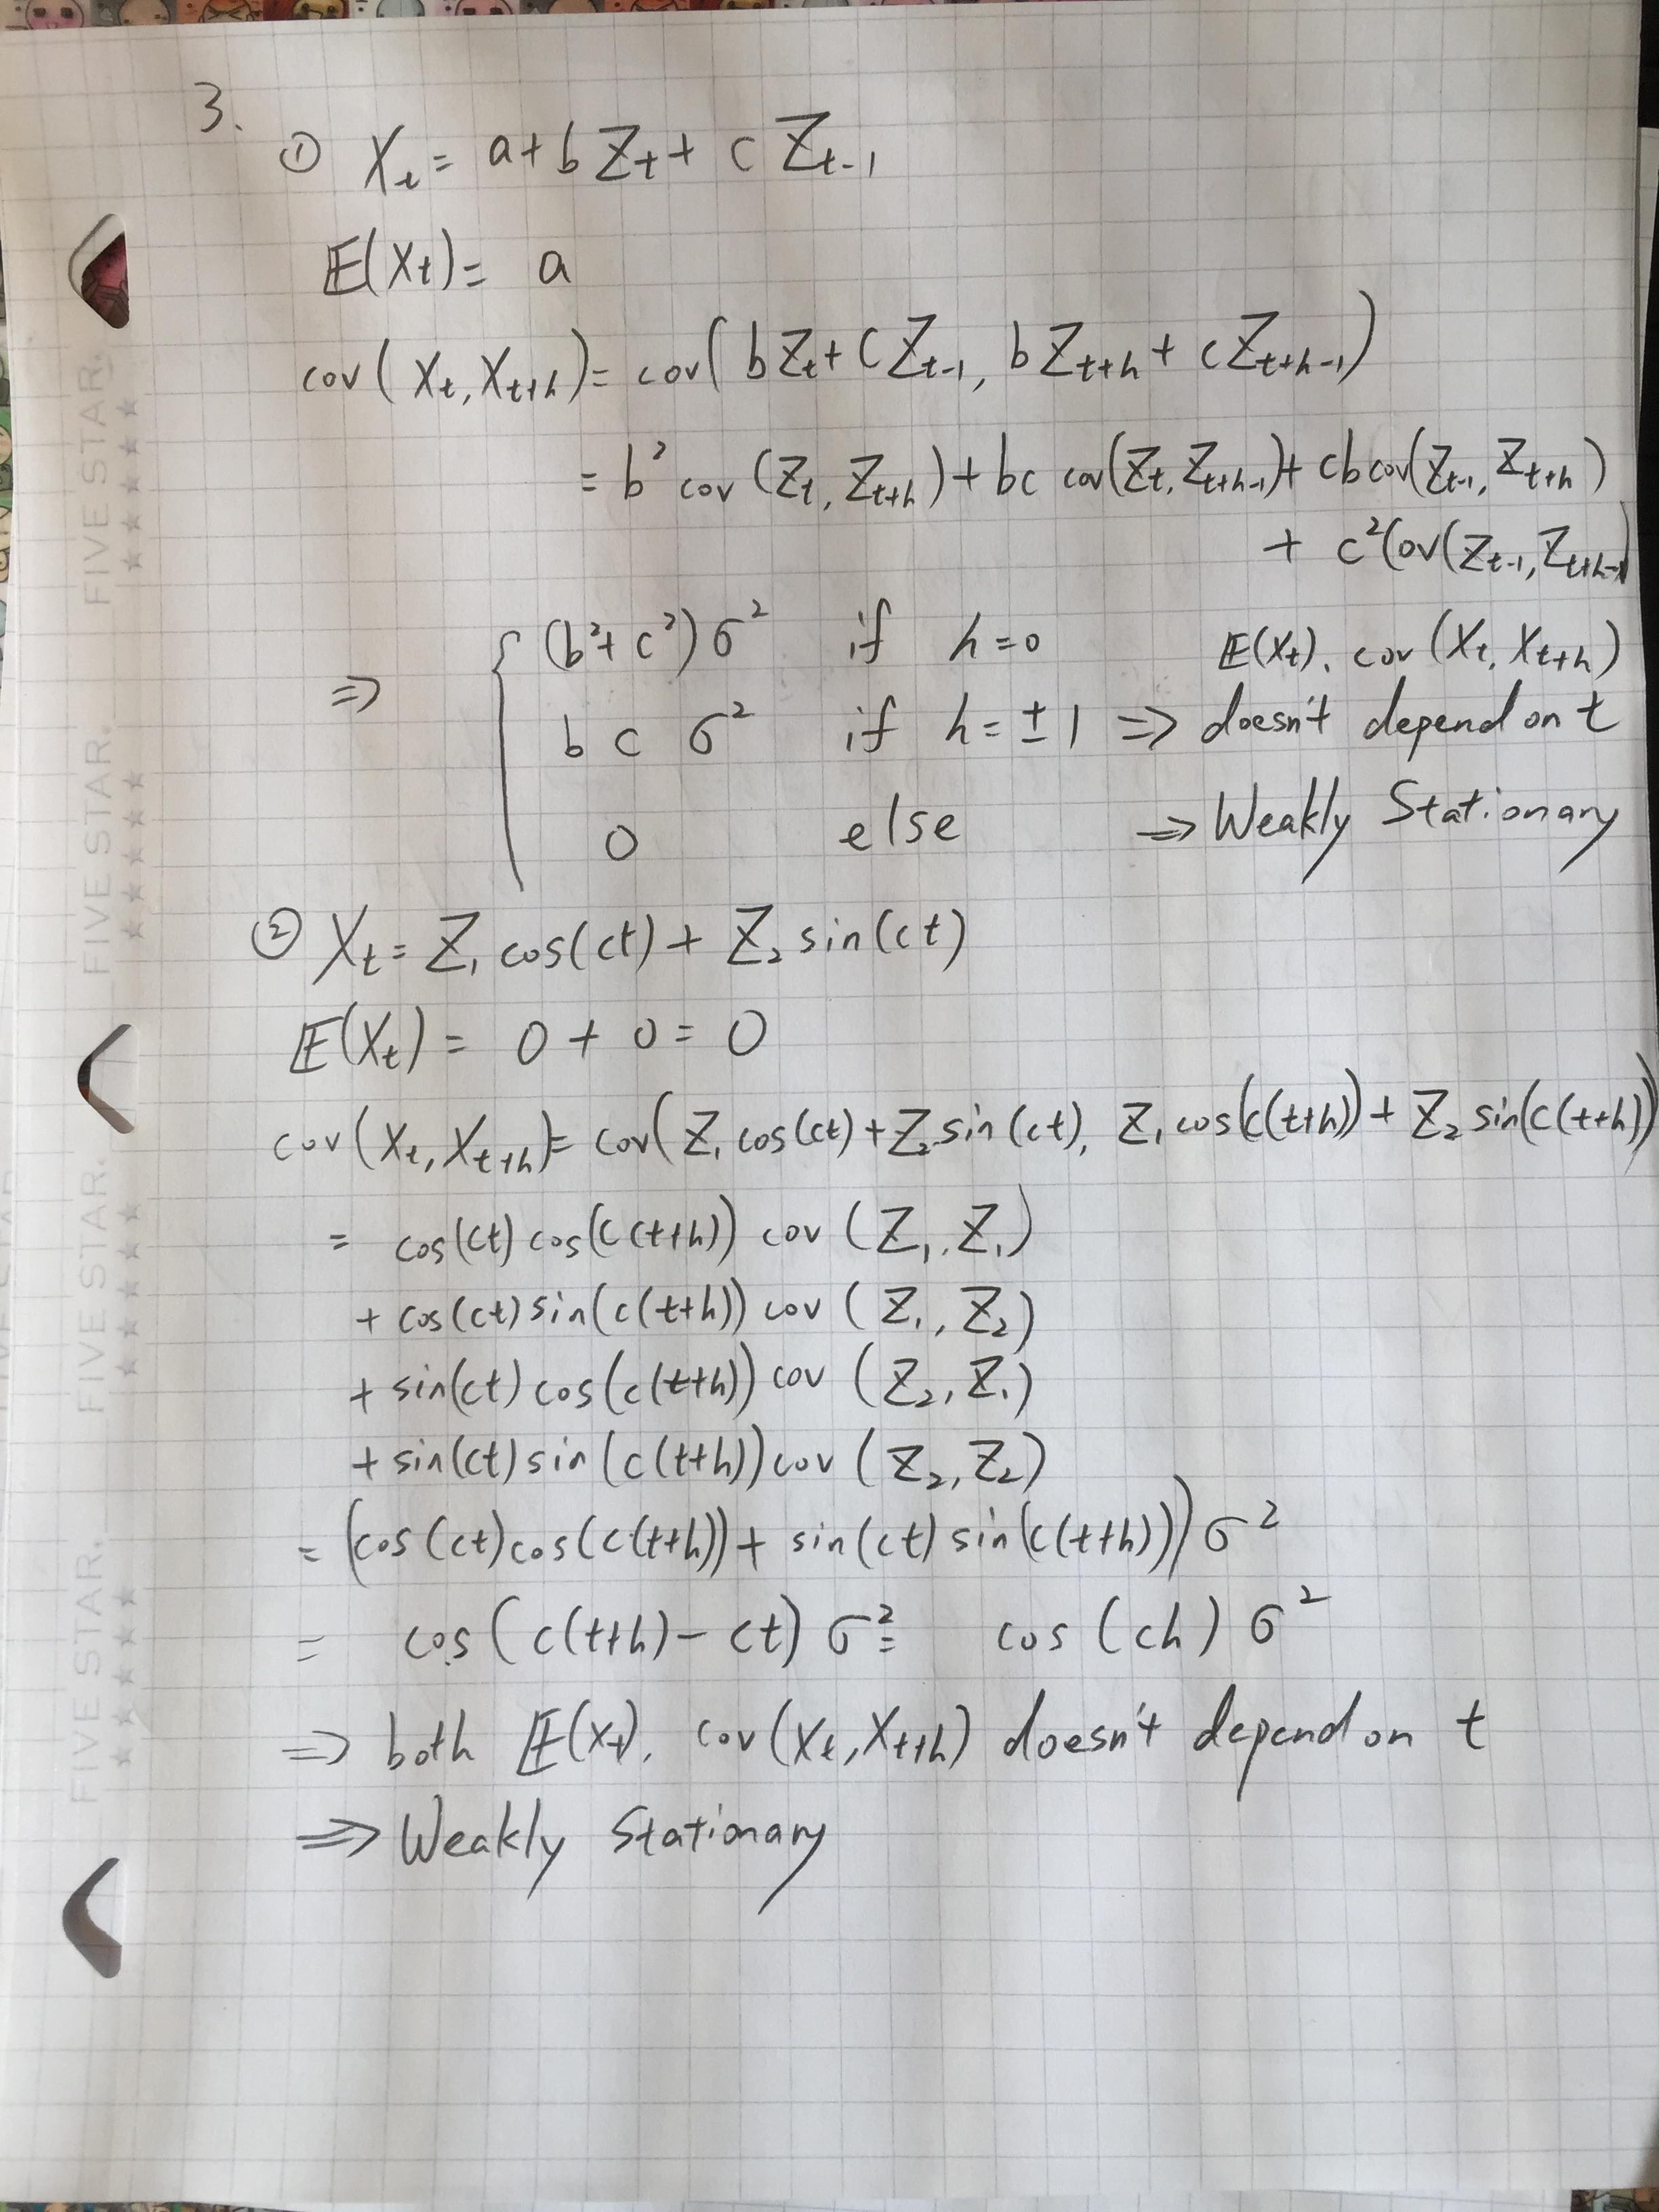 3.
① Xₜ = a + b Zₜ + c Zₜ₋₁
E(Xₜ) = a
cov(Xₜ, Xₜ₊ₕ) = cov(bZₜ + cZₜ₋₁, bZₜ₊ₕ + cZₜ₊ₕ₋₁)
= b² cov(Zₜ, Zₜ₊ₕ) + bc cov(Zₜ, Zₜ₊ₕ₋₁) + cb cov(Zₜ₋₁, Zₜ₊ₕ)
+ c² Cov(Zₜ₋₁, Zₜ₊ₕ₋₁)
⇒ { (b² + c²) σ² if h = 0 E(Xₜ), cov(Xₜ, Xₜ₊ₕ)
b c σ² if h = ± 1 ⇒ doesn't depend on t
0 else ⇒ Weakly Stationary
② Xₜ = Z₁ cos(ct) + Z₂ sin(ct)
E(Xₜ) = 0 + 0 = 0
cov(Xₜ, Xₜ₊ₕ) = cov(Z₁ cos(ct) + Z₂ sin(ct), Z₁ cos(c(t+h)) + Z₂ sin(c(t+h))
= cos(ct) cos(c(t+h)) cov(Z₁, Z₁)
+ cos(ct) sin(c(t+h)) cov(Z₁, Z₂)
+ sin(ct) cos(c(t+h)) cov(Z₂, Z₁)
+ sin(ct) sin(c(t+h)) cov(Z₂, Z₂)
= (cos(ct) cos(c(t+h)) + sin(ct) sin(c(t+h))) σ²
= cos(c(t+h) - ct) σ² = cos(ch) σ²
⇒ both E(Xₜ), cov(Xₜ, Xₜ₊ₕ) doesn't depend on t
⇒ Weakly Stationary
FIVE STAR. ★★★★★
FIVE STAR. ★★★★★
FIVE STAR. ★★★★★
FIVE STAR. ★★★★★